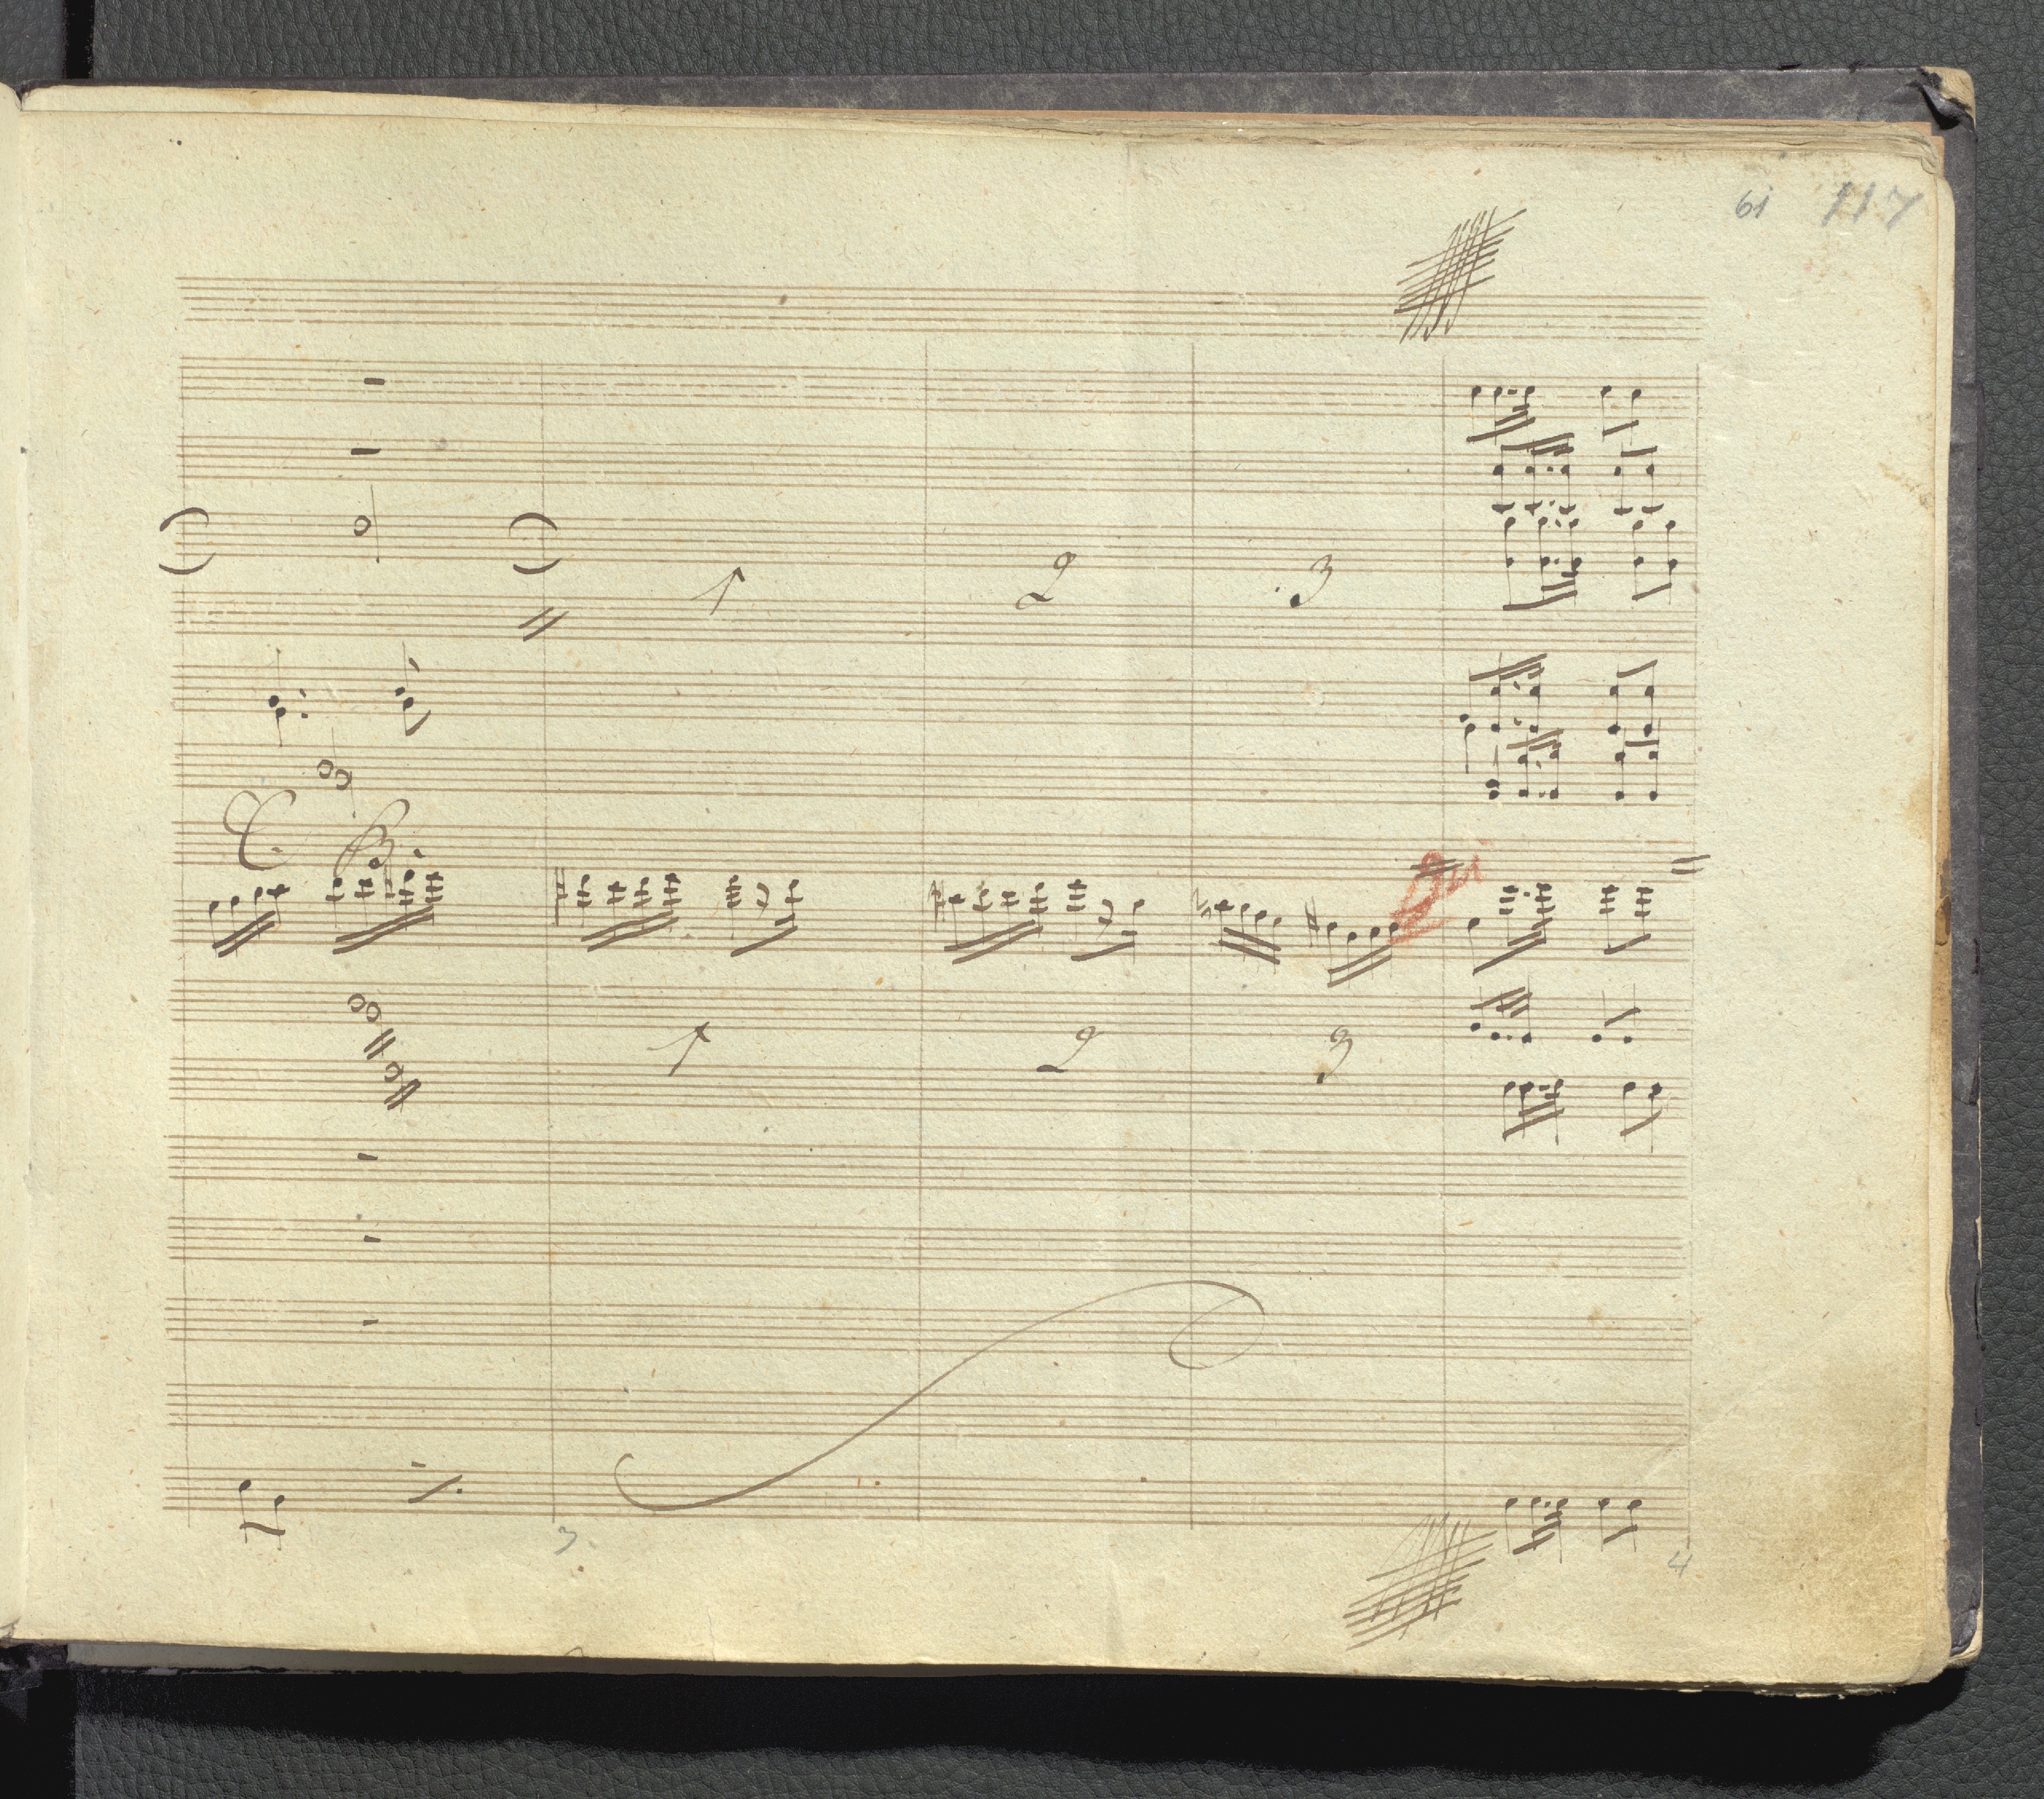 61 117
1 2 3
C. B.
1 2 3
3 4